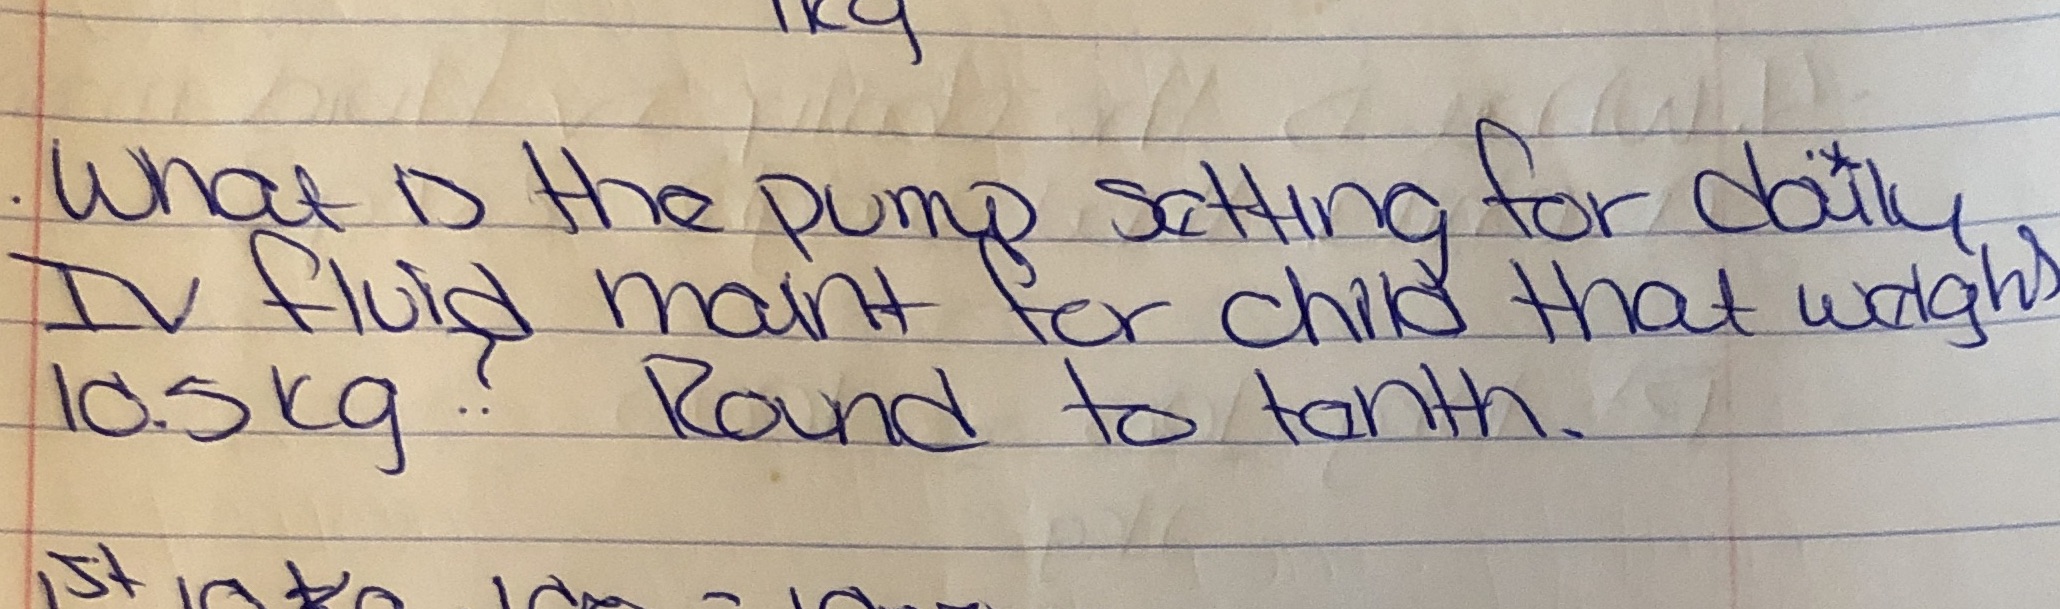 1kg
. What is the pump setting for daily
IV fluid maint for child that weighs
10.5 kg? Round to tenth.
1st 10 kg